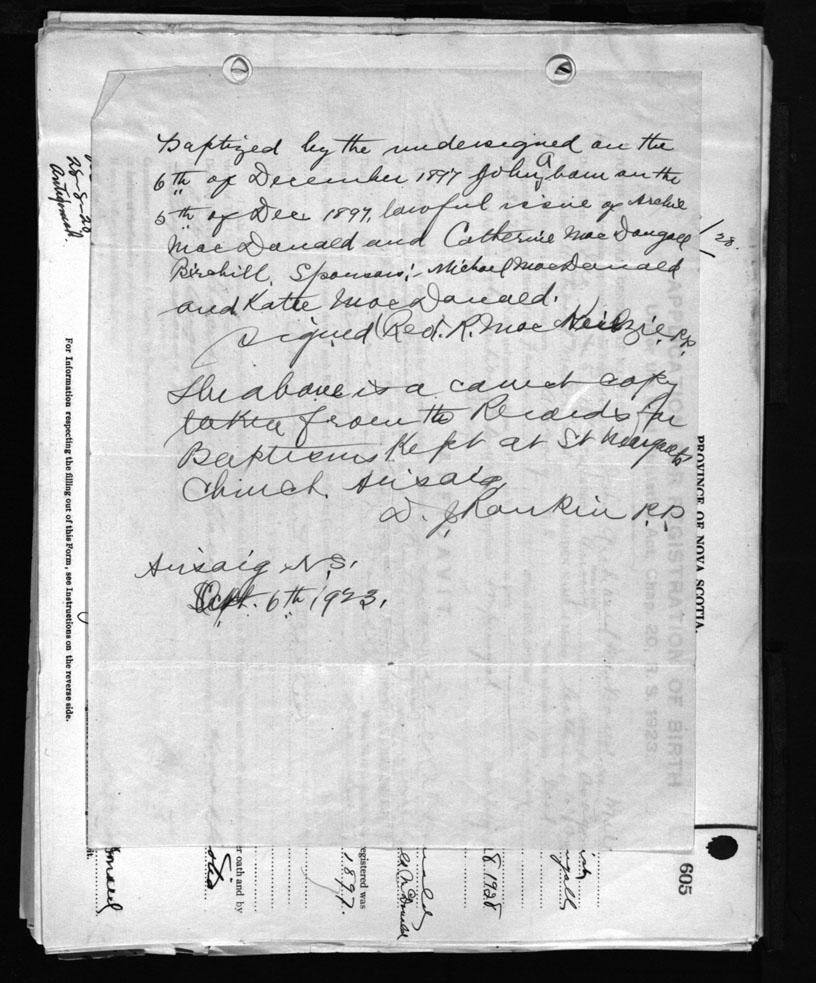 Baptized by the undersigned on the
6th of December 1897 John A born on the
5th of Dec 1897, lawful issue of Archie
MacDonald and Catherine MacDougall
Birchill, Sponsors:- Michael MacDonald
and Katie MacDonald.
signed (Red. R. MacKenzie P.P.
The above is a correct copy
taken from the Records for
Baptisms Kept at St Margarets
Church, Arisaig
D. J. Rankin P.P.
Arisaig N.S.
Sept. 6th, 1923.
/28.
28-8-20
Antigonish.
For Information respecting the filling out of this Form, see Instructions on the reverse side.
PROVINCE OF NOVA SCOTIA.
APPLICATION FOR REGISTRATION OF BIRTH
605
8 1928
registered was
1897.
er oath and by